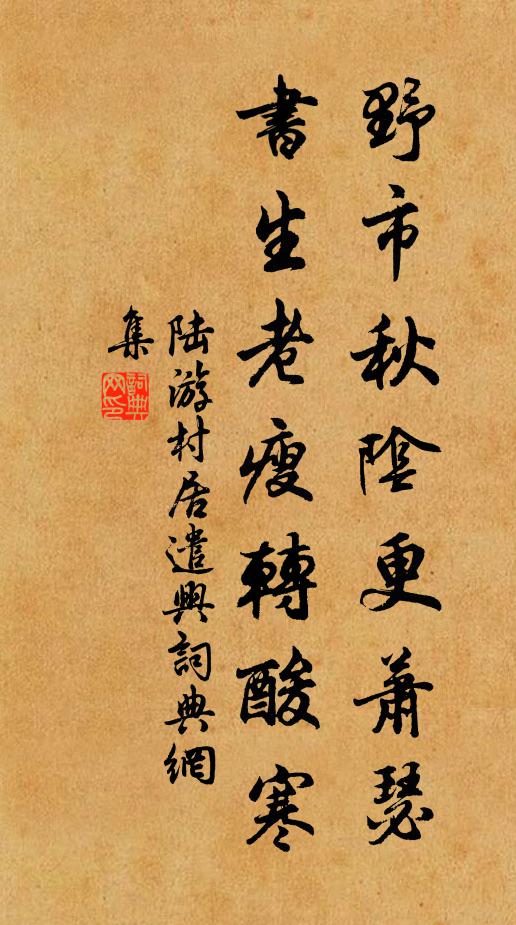 野市秋陰更蕭瑟
書生老瘦轉酸寒
陸游村居遣興詞典網
集
詞典
网印